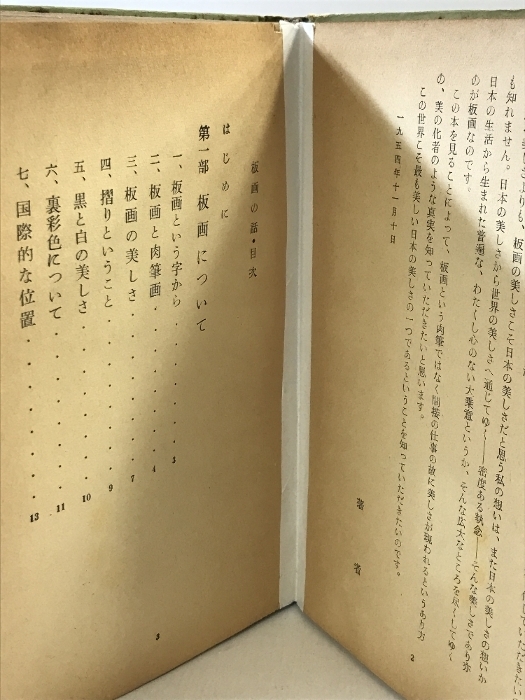 も知れません。日本の美しさから世界の美しさへ通じてゆく——密度ある執念——そんな美しさであり弥
日本の生活から生まれた普遍な、わたくし心のない大乗
のが板画なのです。
この本を見ることによって、板画という肉筆ではなく間接の仕事の故に美しさが現われるというあり方
の、美の化者のような真実を知っていただきたいと思います。
この世界こそ最も美しい日本の美しさの一つであるということを知っていただきたいのです。
一九五四年十一月十日
著者
2
板画の話・目次
はじめに
第一部 板画について
一、板画という字から・・・・・・・・3
二、板画と肉筆画・・・・・・・・4
三、板画の美しさ・・・・・・・・7
四、摺りということ・・・・・・・・9
五、黒と白の美しさ・・・・・・・・10
六、裏彩色について・・・・・・・・11
七、国際的な位置・・・・・・・・13
3